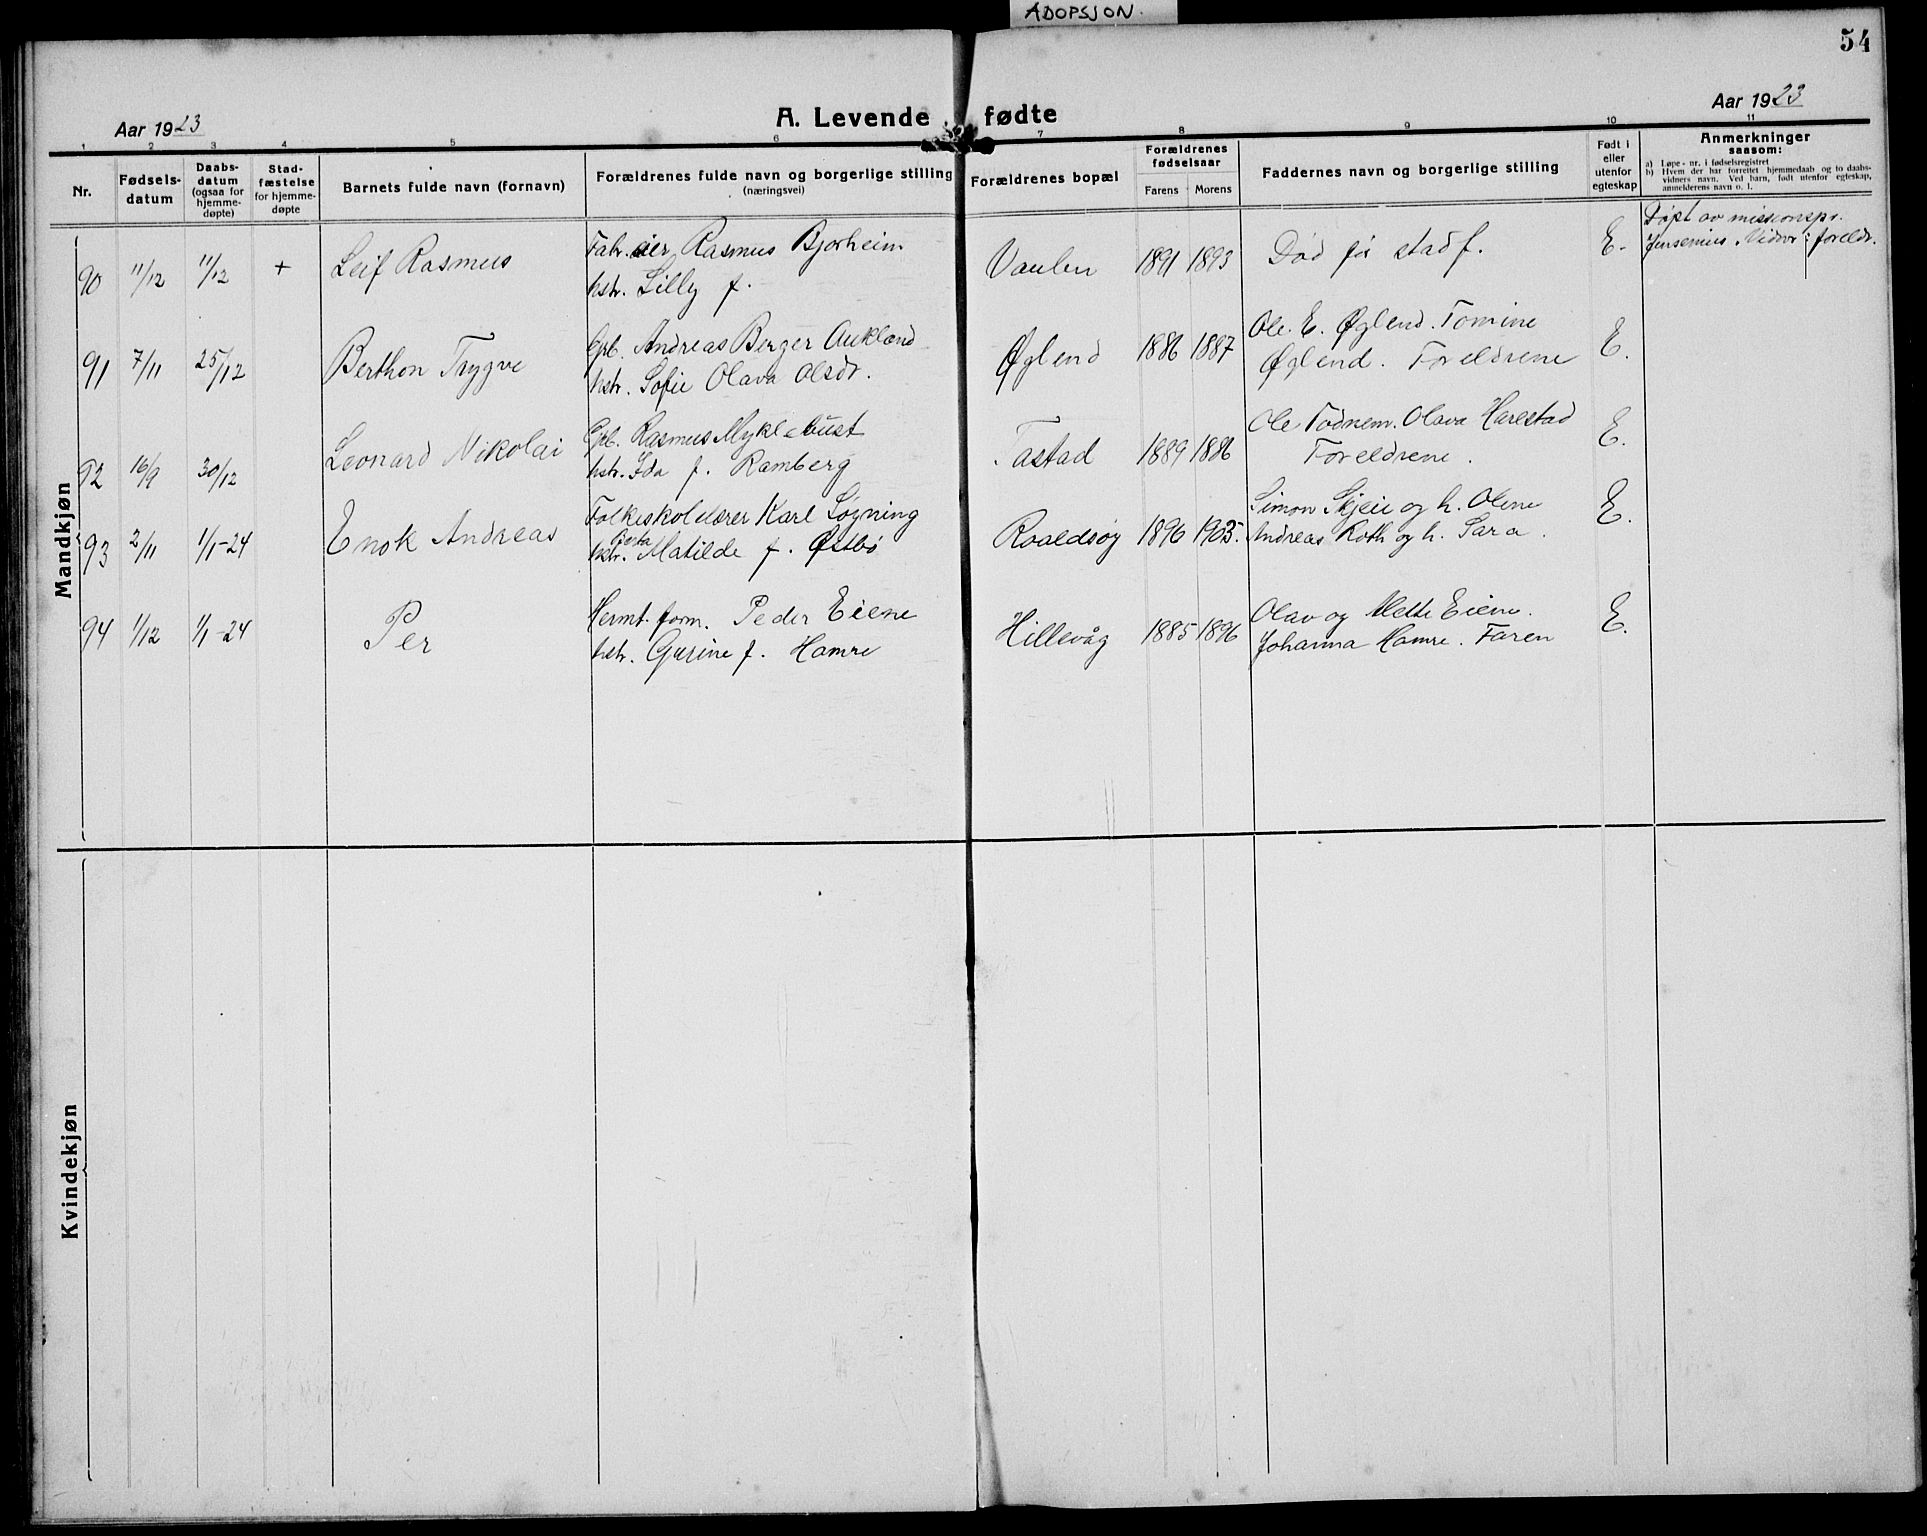 ADOPSJON.
54
Aar 1923
A. Levende fødte
Aar 1923
1 2 3 4 5 6 7 8 9 10 11
Nr.
Fødsels-
datum
Daabs-
datum
(ogsaa for
hjemme-
døpte)
Stad-
fæstelse
for hjemme-
døpte
Barnets fulde navn (fornavn)
Forældrenes fulde navn og borgerlige stilling
(næringsvei)
Forældrenes bopæl
Forældrenes
fødselsaar
Farens Morens
Faddernes navn og borgerlige stilling
Født i
eller
utenfor
egteskap
Anmerkninger
saasom:
a) Løpe-nr. i fødselsregistret
b) Hvem der har forrettet hjemmedaab og to daabs-
vidners navn. Ved barn, født utenfor egteskap,
anmelderens navn o. l.
Mandkjøn
90 11/12 11/12 + Leif Rasmus
Fabr. eier Rasmus Bjorheim
hstr. Lilly f.
Vaulen 1891 1893 Død før stadf. E.
Døpt av missionspr.
Jensenius. Vidner: foreldr.
91 7/11 25/12 Berthon Trygve
Grb. Andreas Berger Aukland
hstr. Sofie Olava Olsdr.
Øglend 1886 1887
Ole E. Øglend. Tomine
Øglend. Foreldrene E.
92 16/9 30/12 Leonard Nikolai
Grb. Rasmus Myklebust
hstr. Ida f. Ramberg
Tastad 1889 1886
Ole Todnem. Olava Harestad
Foreldrene. E.
93 2/11 1/1-24 Enok Andreas
Folkeskolelærer Karl Søgning
hstr. Berta Matilde f. Østbø
Roaldsøy 1896 1903.
Simon Skjeie og h. Olene
Andreas Roth og h. Sara. E.
94 1/12 1/1-24 Per
Hermt. form. Peder Eiene
hstr. Gurine f. Hamre
Hillevåg 1885 1896
Olav og Mette Eiene.
Johanna Hamre. Faren E.
Kvindekjøn